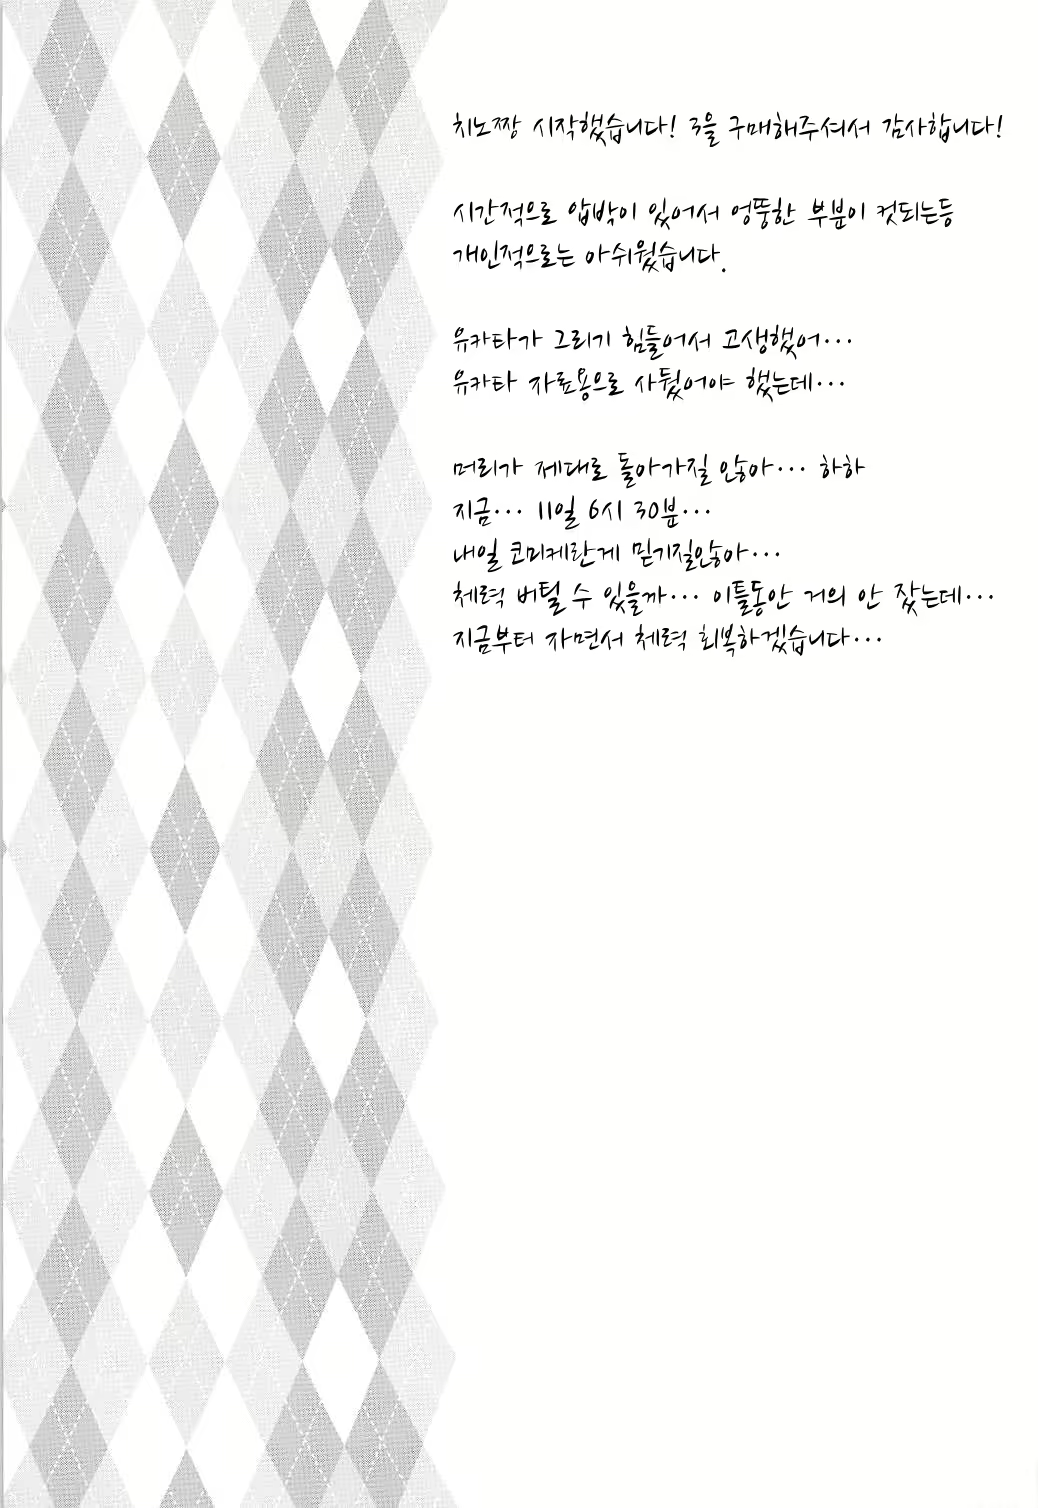 치노쨩 시작했습니다! 3을 구매해주셔서 감사합니다!
시간적으로 압박이 있어서 엉뚱한 부분이 컷되는등
개인적으로는 아쉬웠습니다.
유카타가 그리기 힘들어서 고생했어...
유카타 자료용으로 사뒀어야 했는데...
머리가 제대로 돌아가질 않아... 하하
지금... 11일 6시 30분...
내일 코미케란게 믿기질않아...
체력 버틸 수 있을까... 이틀동안 거의 안 잤는데...
지금부터 자면서 체력 회복하겠습니다...